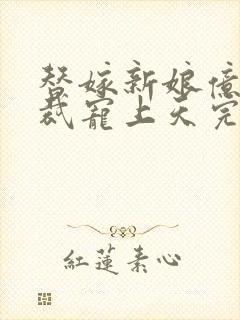 替嫁新娘億
裁寵上天完
紅蓮素心